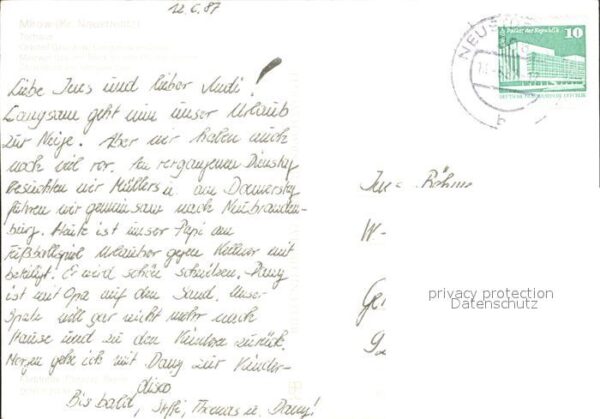 12.6.87
Mirow (Kr. Neustrelitz)
Torhaus
Liebe Ines und lieber Andi!
Langsam geht nun unser Urlaub
zur Neige. Aber wir haben auch
noch viel vor. Am vergangenen Dienstag
besuchten wir Müllers u. am Donnerstag
führen wir gemeinsam nach Neubranden-
burg. Heute ist unser Papi am
Fußballspiel Urlauber gegen Kellner mit
beteiligt. Er wird schön schwitzen. Dany
ist mit Opa auf den Sand. Unser
will gar nicht mehr nach
Hause und zu den Kindern zurück.
Morgen gehe ich mit Dany zur Kinder-
disco
Bis bald, Steffi, Thomas u. Dany!
NEUST
Palast der Republik
10
DEUTSCHE DEMOKRATISCHE REPUBLIK
b
Böhme
W-
privacy protection
Datenschutz